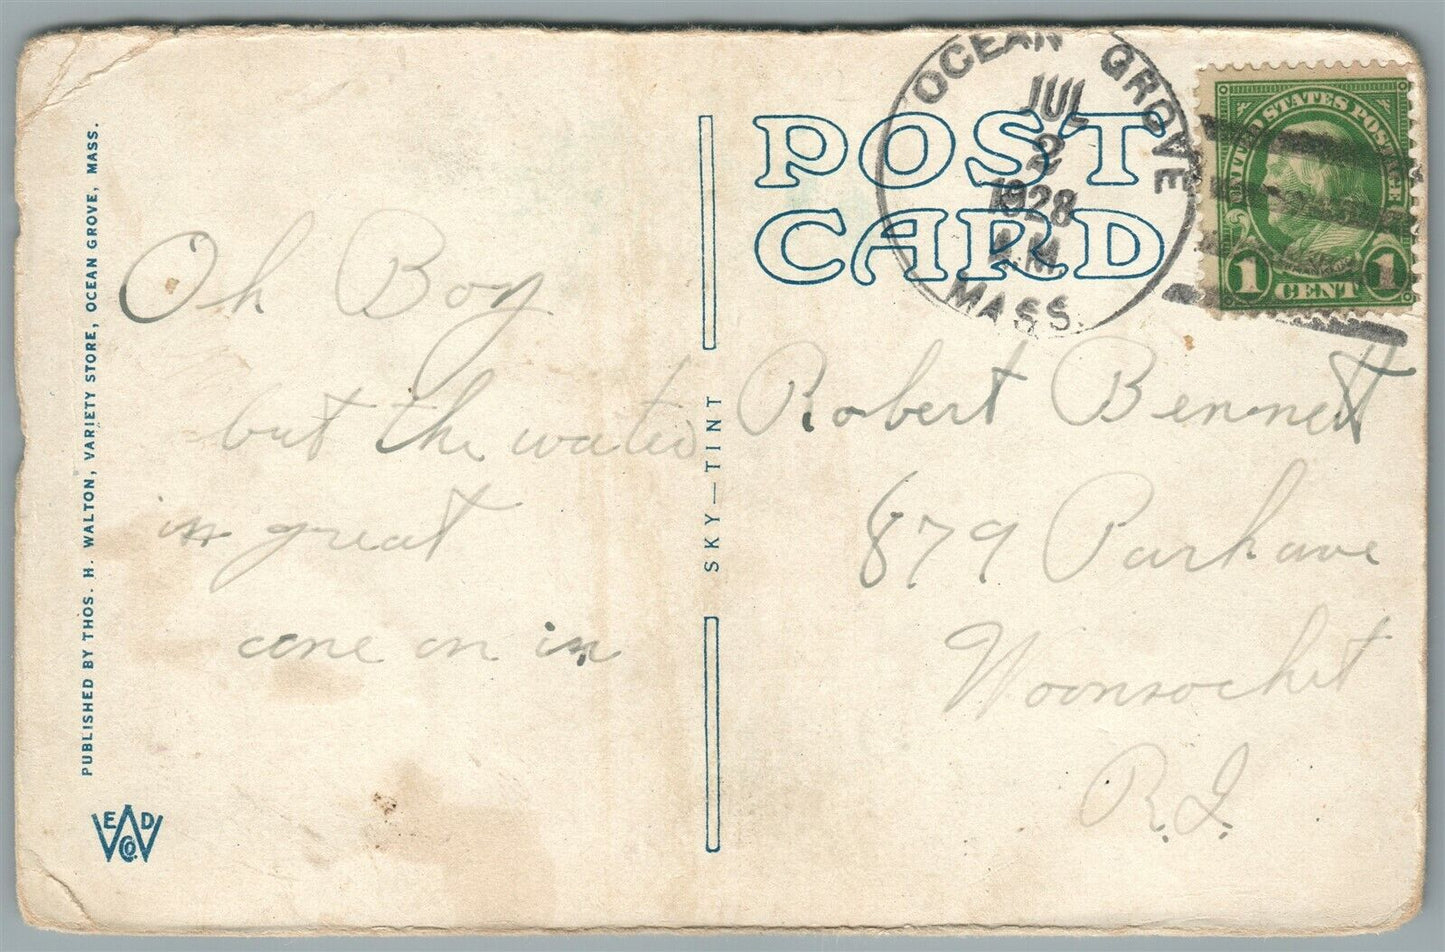 PUBLISHED BY THOS. H. WALTON, VARIETY STORE, OCEAN GROVE, MASS.
E D
W
CO.
Oh Boy
but the water
in great
come on in
SKY—TINT
POST
CARD
OCEAN GROVE
JUL
2
1928
A.M.
MASS.
UNITED STATES POSTAGE
1 CENT 1
Robert Bennett
879 Park ave
Woonsocket
R.I.